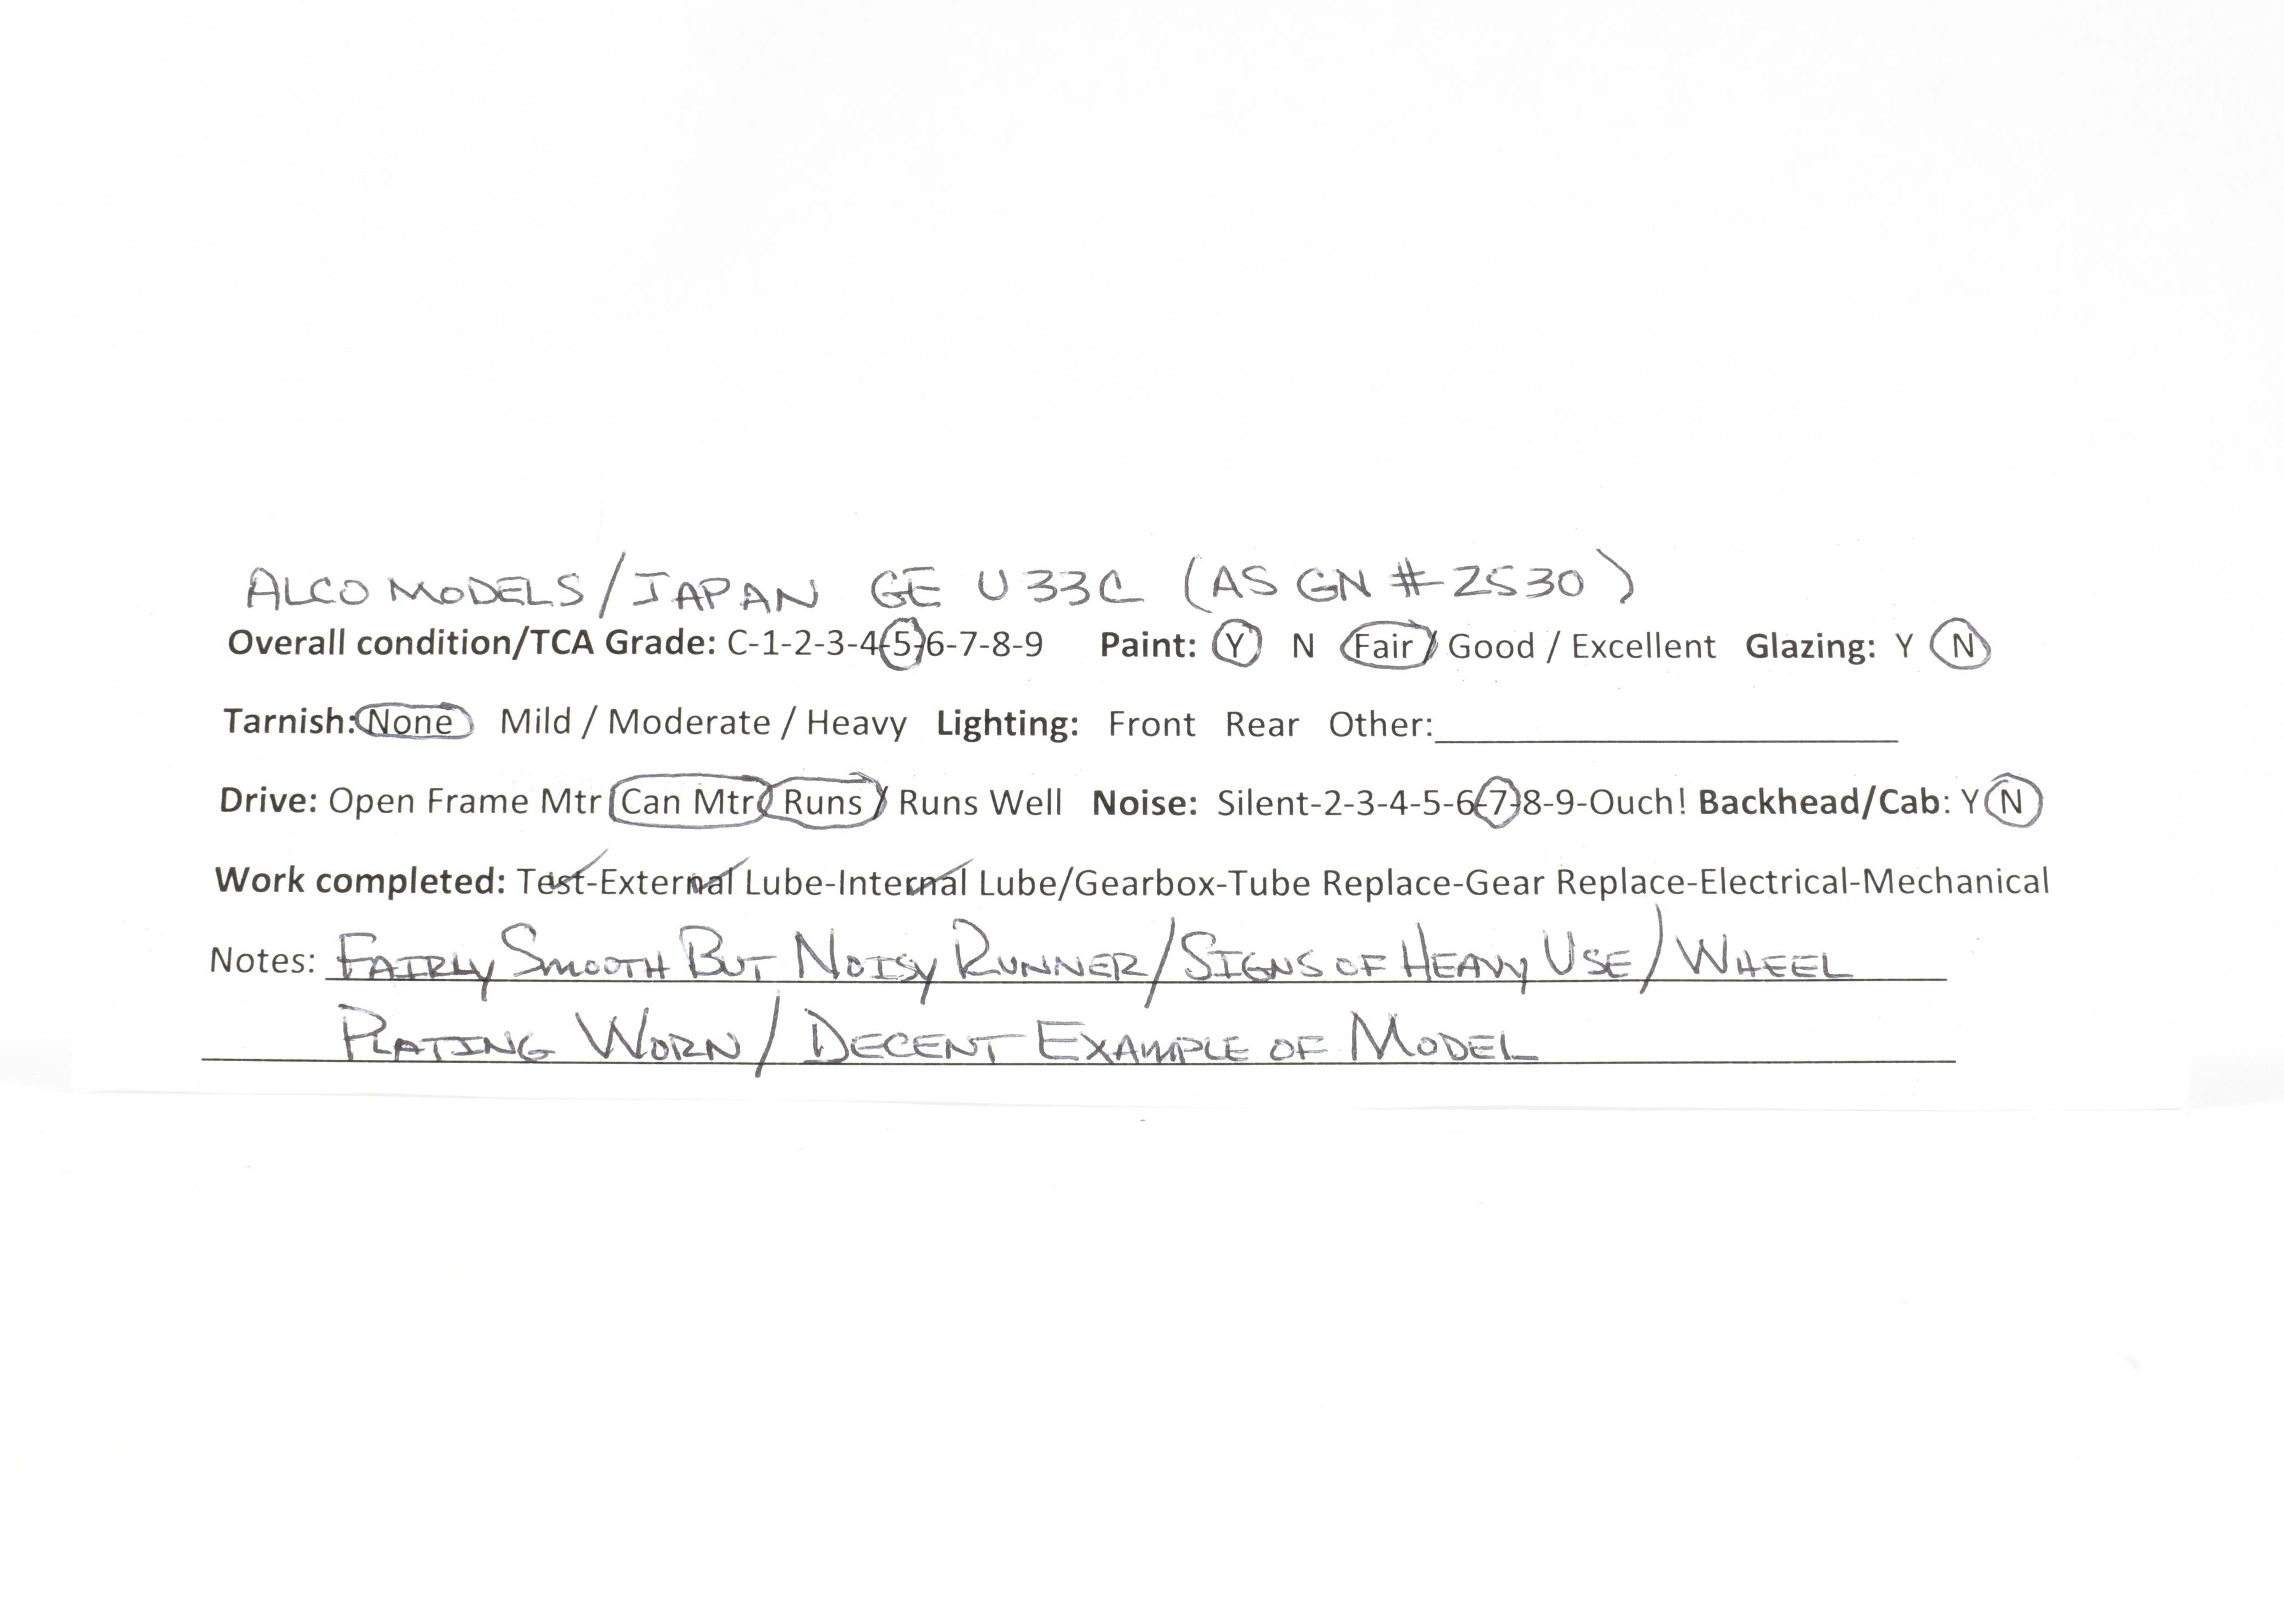 ALCO MODELS/JAPAN GE U33C (AS GN #2530)
Overall condition/TCA Grade: C-1-2-3-4-5-6-7-8-9 Paint: Y N Fair / Good / Excellent Glazing: Y N
Tarnish: None Mild / Moderate / Heavy Lighting: Front Rear Other:
Drive: Open Frame Mtr Can Mtr Runs / Runs Well Noise: Silent-2-3-4-5-6-7-8-9-Ouch! Backhead/Cab: Y N
Work completed: Test-External Lube-Internal Lube/Gearbox-Tube Replace-Gear Replace-Electrical-Mechanical
Notes: FAIRLY SMOOTH BUT NOISY RUNNER/SIGNS OF HEAVY USE/WHEEL
PLATING WORN/DECENT EXAMPLE OF MODEL